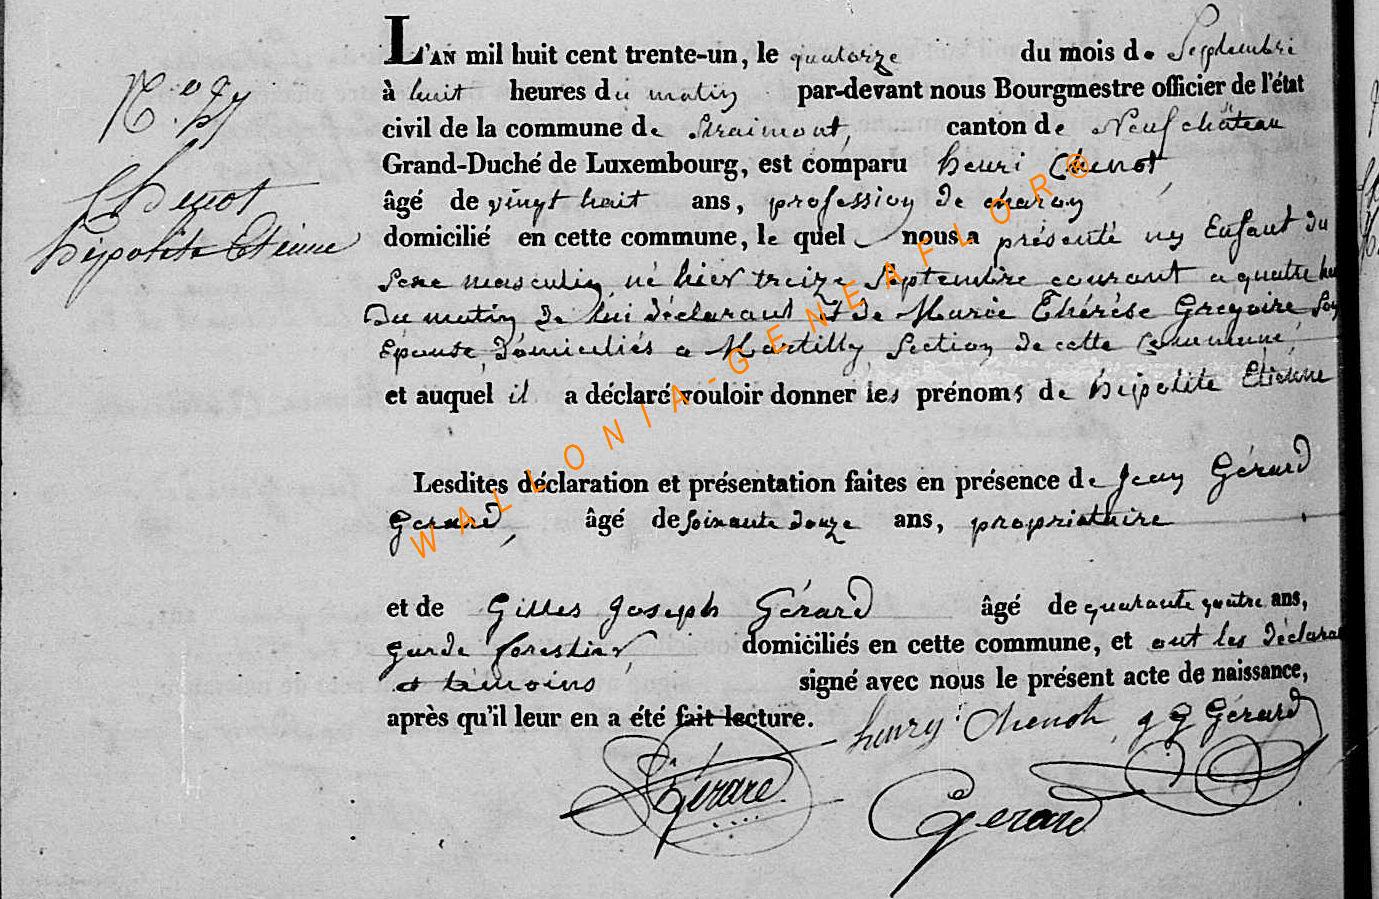 L'AN mil huit cent trente-un, le quatorze du mois de Septembre
à huit heures du matin par-devant nous Bourgmestre officier de l'état
civil de la commune de Straimont, canton de Neufchâteau
Grand-Duché de Luxembourg, est comparu henri Chenot,
âgé de vingt huit ans, profession de charon
domicilié en cette commune, le quel nous a présenté un Enfant du
Sexe masculin né hier treize Septembre courant a quatre
Du matin De lui déclarant & de Marie Thérèse Gregoire Son
Epouse domiciliés a Martilly Section De cette Commune,
et auquel il a déclaré vouloir donner les prénoms de hipolite Etienne
Lesdites déclaration et présentation faites en présence de Jean Gérard
Gerard, âgé de soixante douze ans, propriétaire
et de Gilles Joseph Gérard âgé de quarante quatre ans,
garde forestier, domiciliés en cette commune, et ont les déclarant
et témoins signé avec nous le présent acte de naissance,
après qu'il leur en a été fait lecture.
henry Chenot g g Gérard
Gérard Gerard
Chenot
hipolite Etienne
WALLONIA-GENEAFLOR®